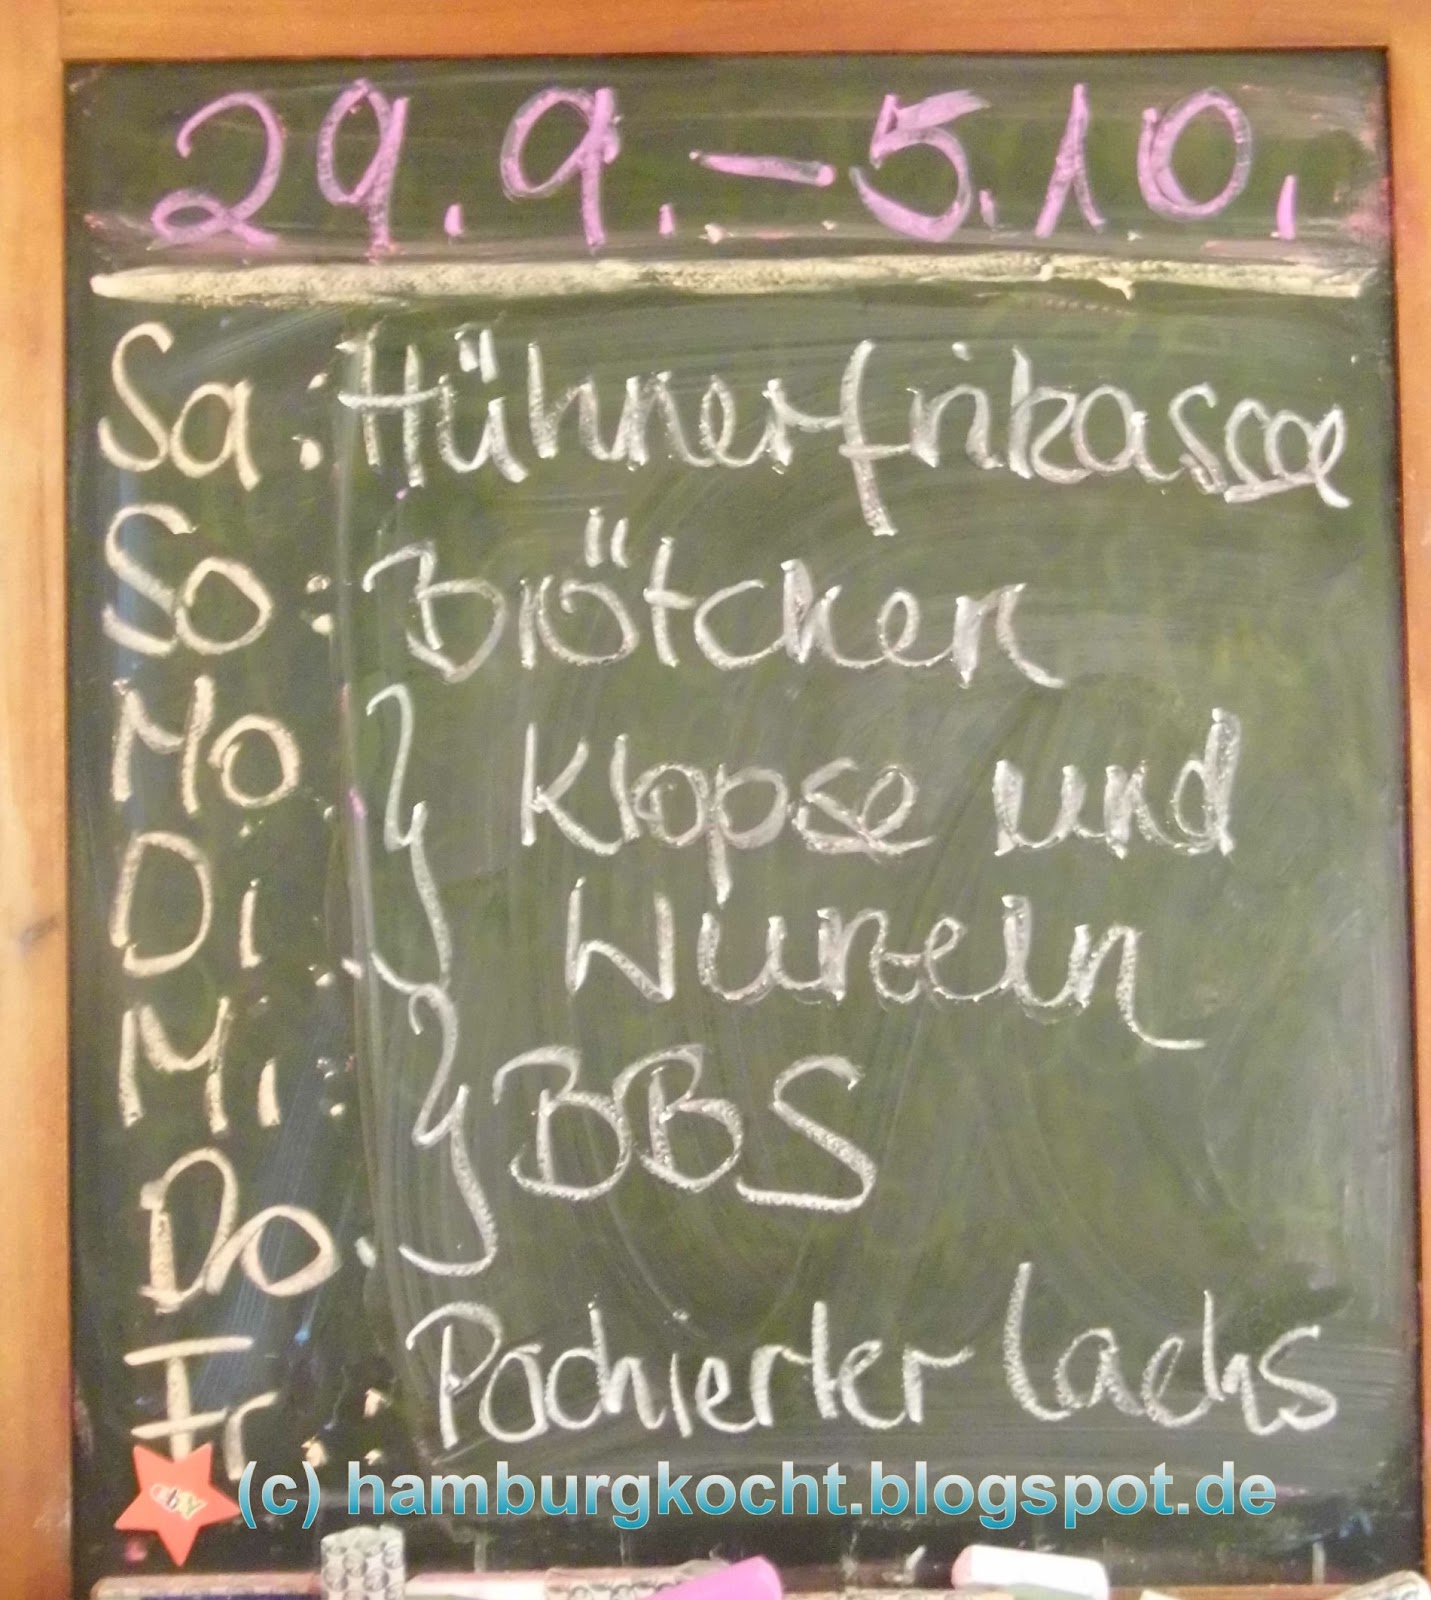 29.9.-5.10.
Sa: Hühnerfrikassee
So: Brötchen
Mo: } Klopse und
Di: Wurzeln
Mi: } BBS
Do:
Fr: Pochierter Lachs
(c) hamburgkocht.blogspot.de